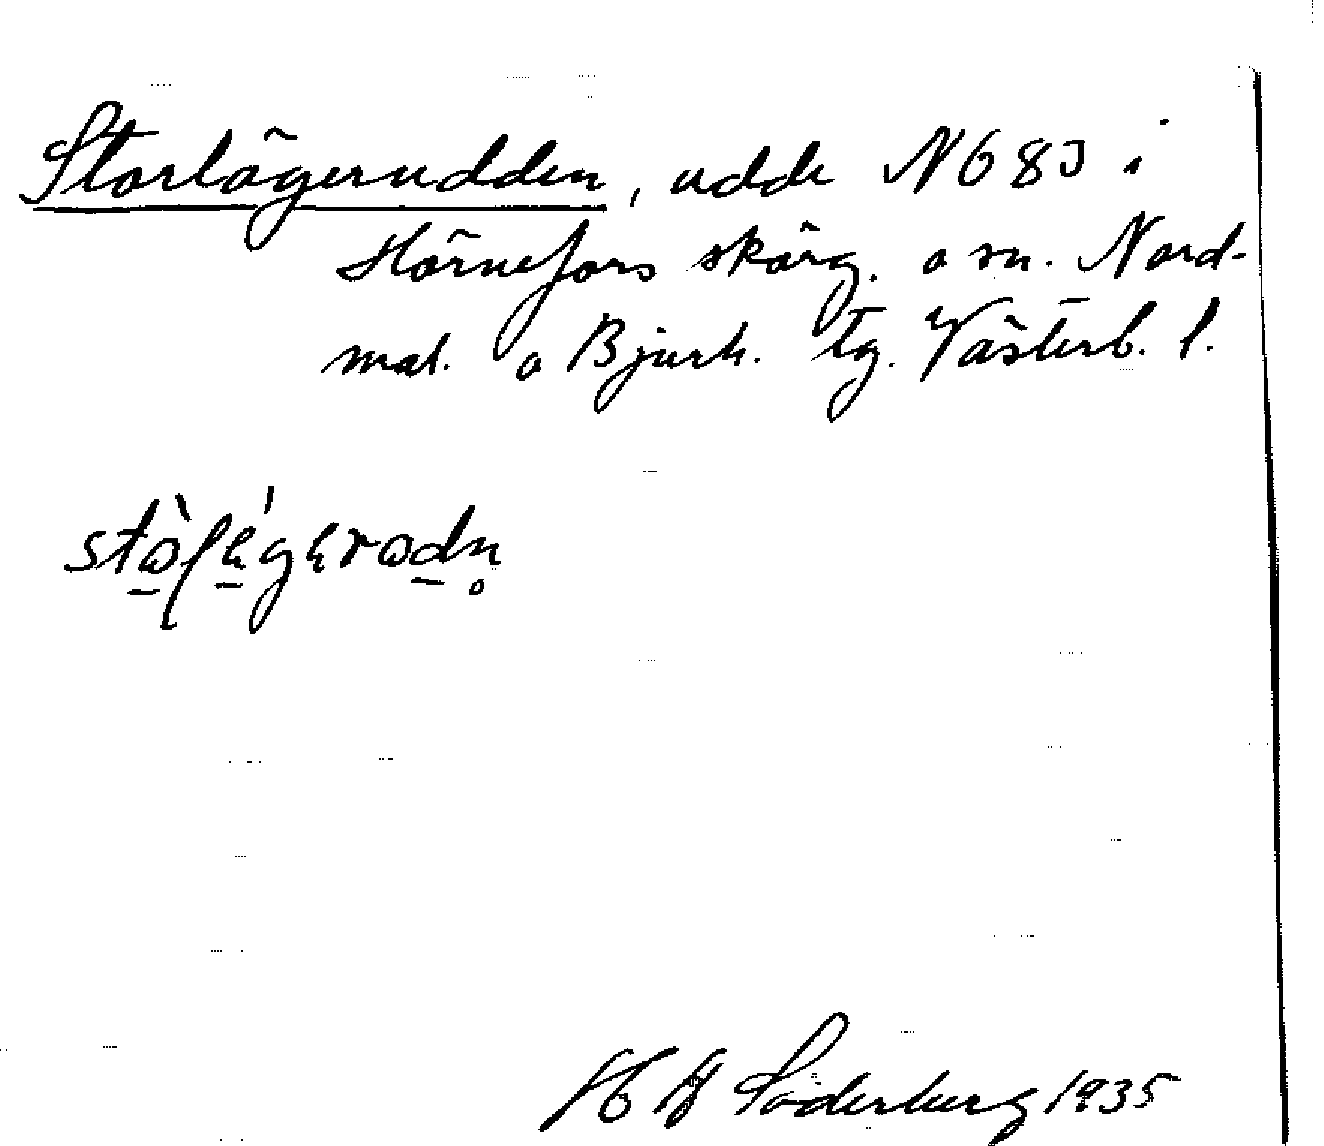 Storlägerudden, udde N683 i
Hörnefors skärg. o sn. Nord-
mal. o Bjurh. tg. Västerb. l.
Söderberg 1935